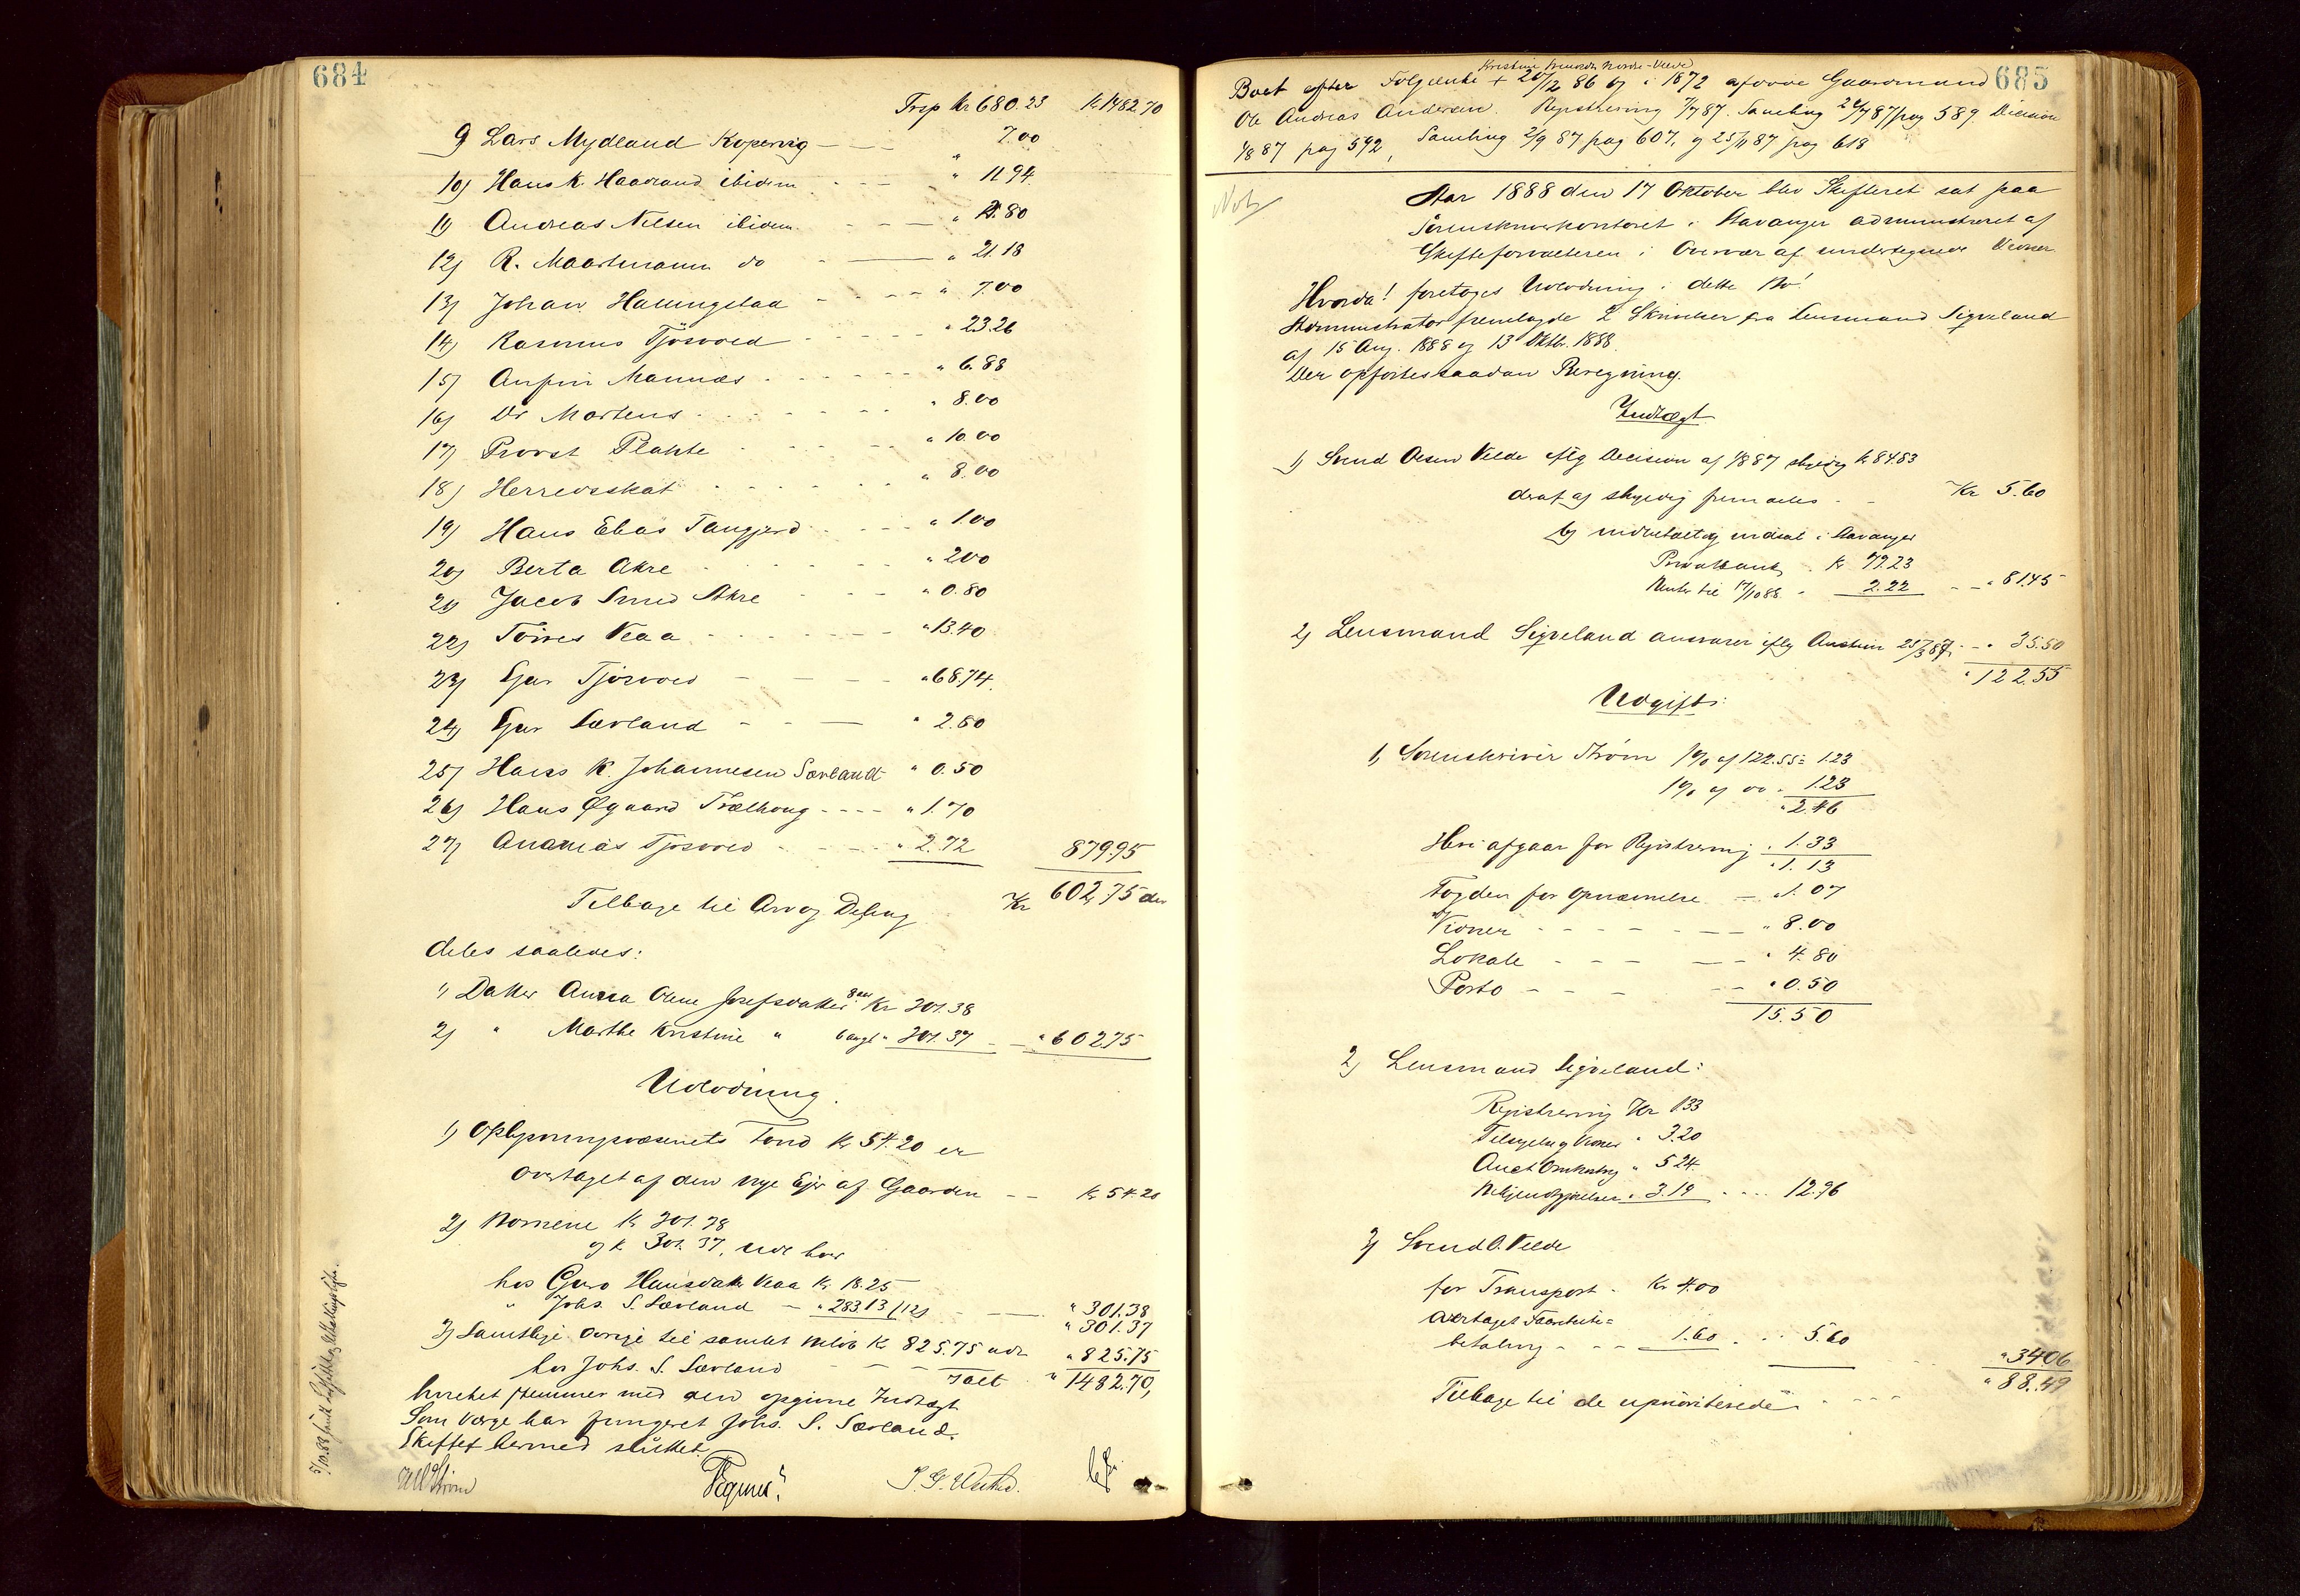 684
Trsp Kr 680.23 Kr 1482.70
9 Lars Mydland Kopervig — — " 7.00
10) Hans K. Haaland ibidem - - — " 11.94
11) Andreas Nilsen ibidem - - — "
12) R. Maartmann do - — " 21.18
13) Johan Hallingstad - - - - " 7.00
14) Rasmus Tjösvold - - - - - " 23.26
15) Anfin Mannes - - - - - " 6.88
16) Dr Martens - - - - - - " 8.00
17) Provst Plahte - - - - " 10.00
18) Herredsskat - - - - - " 8.00
19) Hans Elias Tangjerd - - - " 1.00
20) Berta Akre - - - - - " 2.00
21) Jacob Smed Akre - - - - " 0.80
22) Törres Veaa - - - - - " 13.40
23) Gjær Tjösvold - - - — " 68.74
24) Gjær Sævland - - — " 2.60
25) Hans K. Johannesen Sævland " 0.50
26) Hans Øgaard Trælhoug - - - - " 1.70
27) Ananias Tjösvold - - - - " 2.72 879.95
Tilbage til Arv og Deling Kr 602,75 der
deles saaledes:
1) Datter Anna Oline Josefsdatter 8 aar Kr 301.38
2) " Marthe Kristine " 6 aar " 301.37 — " 602.75
Udlodning.
1) Oplysningsvæsenets Fond Kr 54.20 er
overtaget af den nye Ejer af Gaarden - - Kr 54.20
2) Börnene Kr 301.38
og Kr 301.37, udl hos
hos Guro Hansdatter Veaa Kr 18.25
" Johs. S. Sævland — " 283.13 - — " 301.38
" 301.37
3) Samtlige övrige til samlet Belöb Kr 825.75 udl " 825.75
hos Johs. S. Sævland - - - Ialt " 1482.70,
hvilket stemmer med den opgivne Indtægt
Som Værge har fungeret Johs. S. Sævland.
Skiftet dermed sluttet.
685
Kristine Nordre-Velde
Boet efter Fölgende + 20/12 86 og i 1872 afdöde Gaardmand
Ole Andreas Andersen. Registrering 7/7 87. Samling 28/7 87 pag 589. Decision
1/8 87 pag 592, Samling 2/9 87 pag 607, og 25/11 87 pag 618
Aar 1888 den 17 Oktober blev Skifteret sat paa
Sörenskriverkontoret i Stavanger administreret af
Skifteforvalteren i Overvær af undertegnede Vidner
Hvorda! foretoges Udlodning i dette Bo.
Administrator fremlagde 2 Skrivelser fra Lensmand Sigveland
af 15 Aug. 1888 og 13 Oktbr. 1888.
Der opförtes saadan Beregning.
Indtægt
1) Svend Olsen Velde iflg Decision af 1/8 87 skyldig Kr 84.83
deraf a) skyldig fremdeles - - Kr 5.60
b) indbetalt og indsat i Stavanger
Privatbank . Kr 79.23
Renter til 17/10 88 - 2.22 - - " 81.45
2) Lensmand Sigveland ansvarer iflg Auction - - " 35.50
" 122.55
Udgift:
1, Sorenskriver Ström 1% af 122.55 = 1.23
1% af do . 1.23
" 2.46
Heri afgaar for Registrering " 1.33
" 1.13
Fogden for Opnævnelse — " 1.07
Vidner - - - - - — " 8.00
Lokale - - - — - " 4.80
Porto - - - - - - " 0.50
15.50
2) Lensmand Sigveland:
Registrering Kr 1.33
Tilsigelse og Vidner " 3.20
Auct Omkostng " 5.24
" 3.19 . . . . 12.96
3) Svend O. Velde
for Transport - Kr 4.00
overtaget
betaling - - - 1.60 . . . 5.60
" 34.06
Tilbage til de uprioriterede - - - - " 88.49